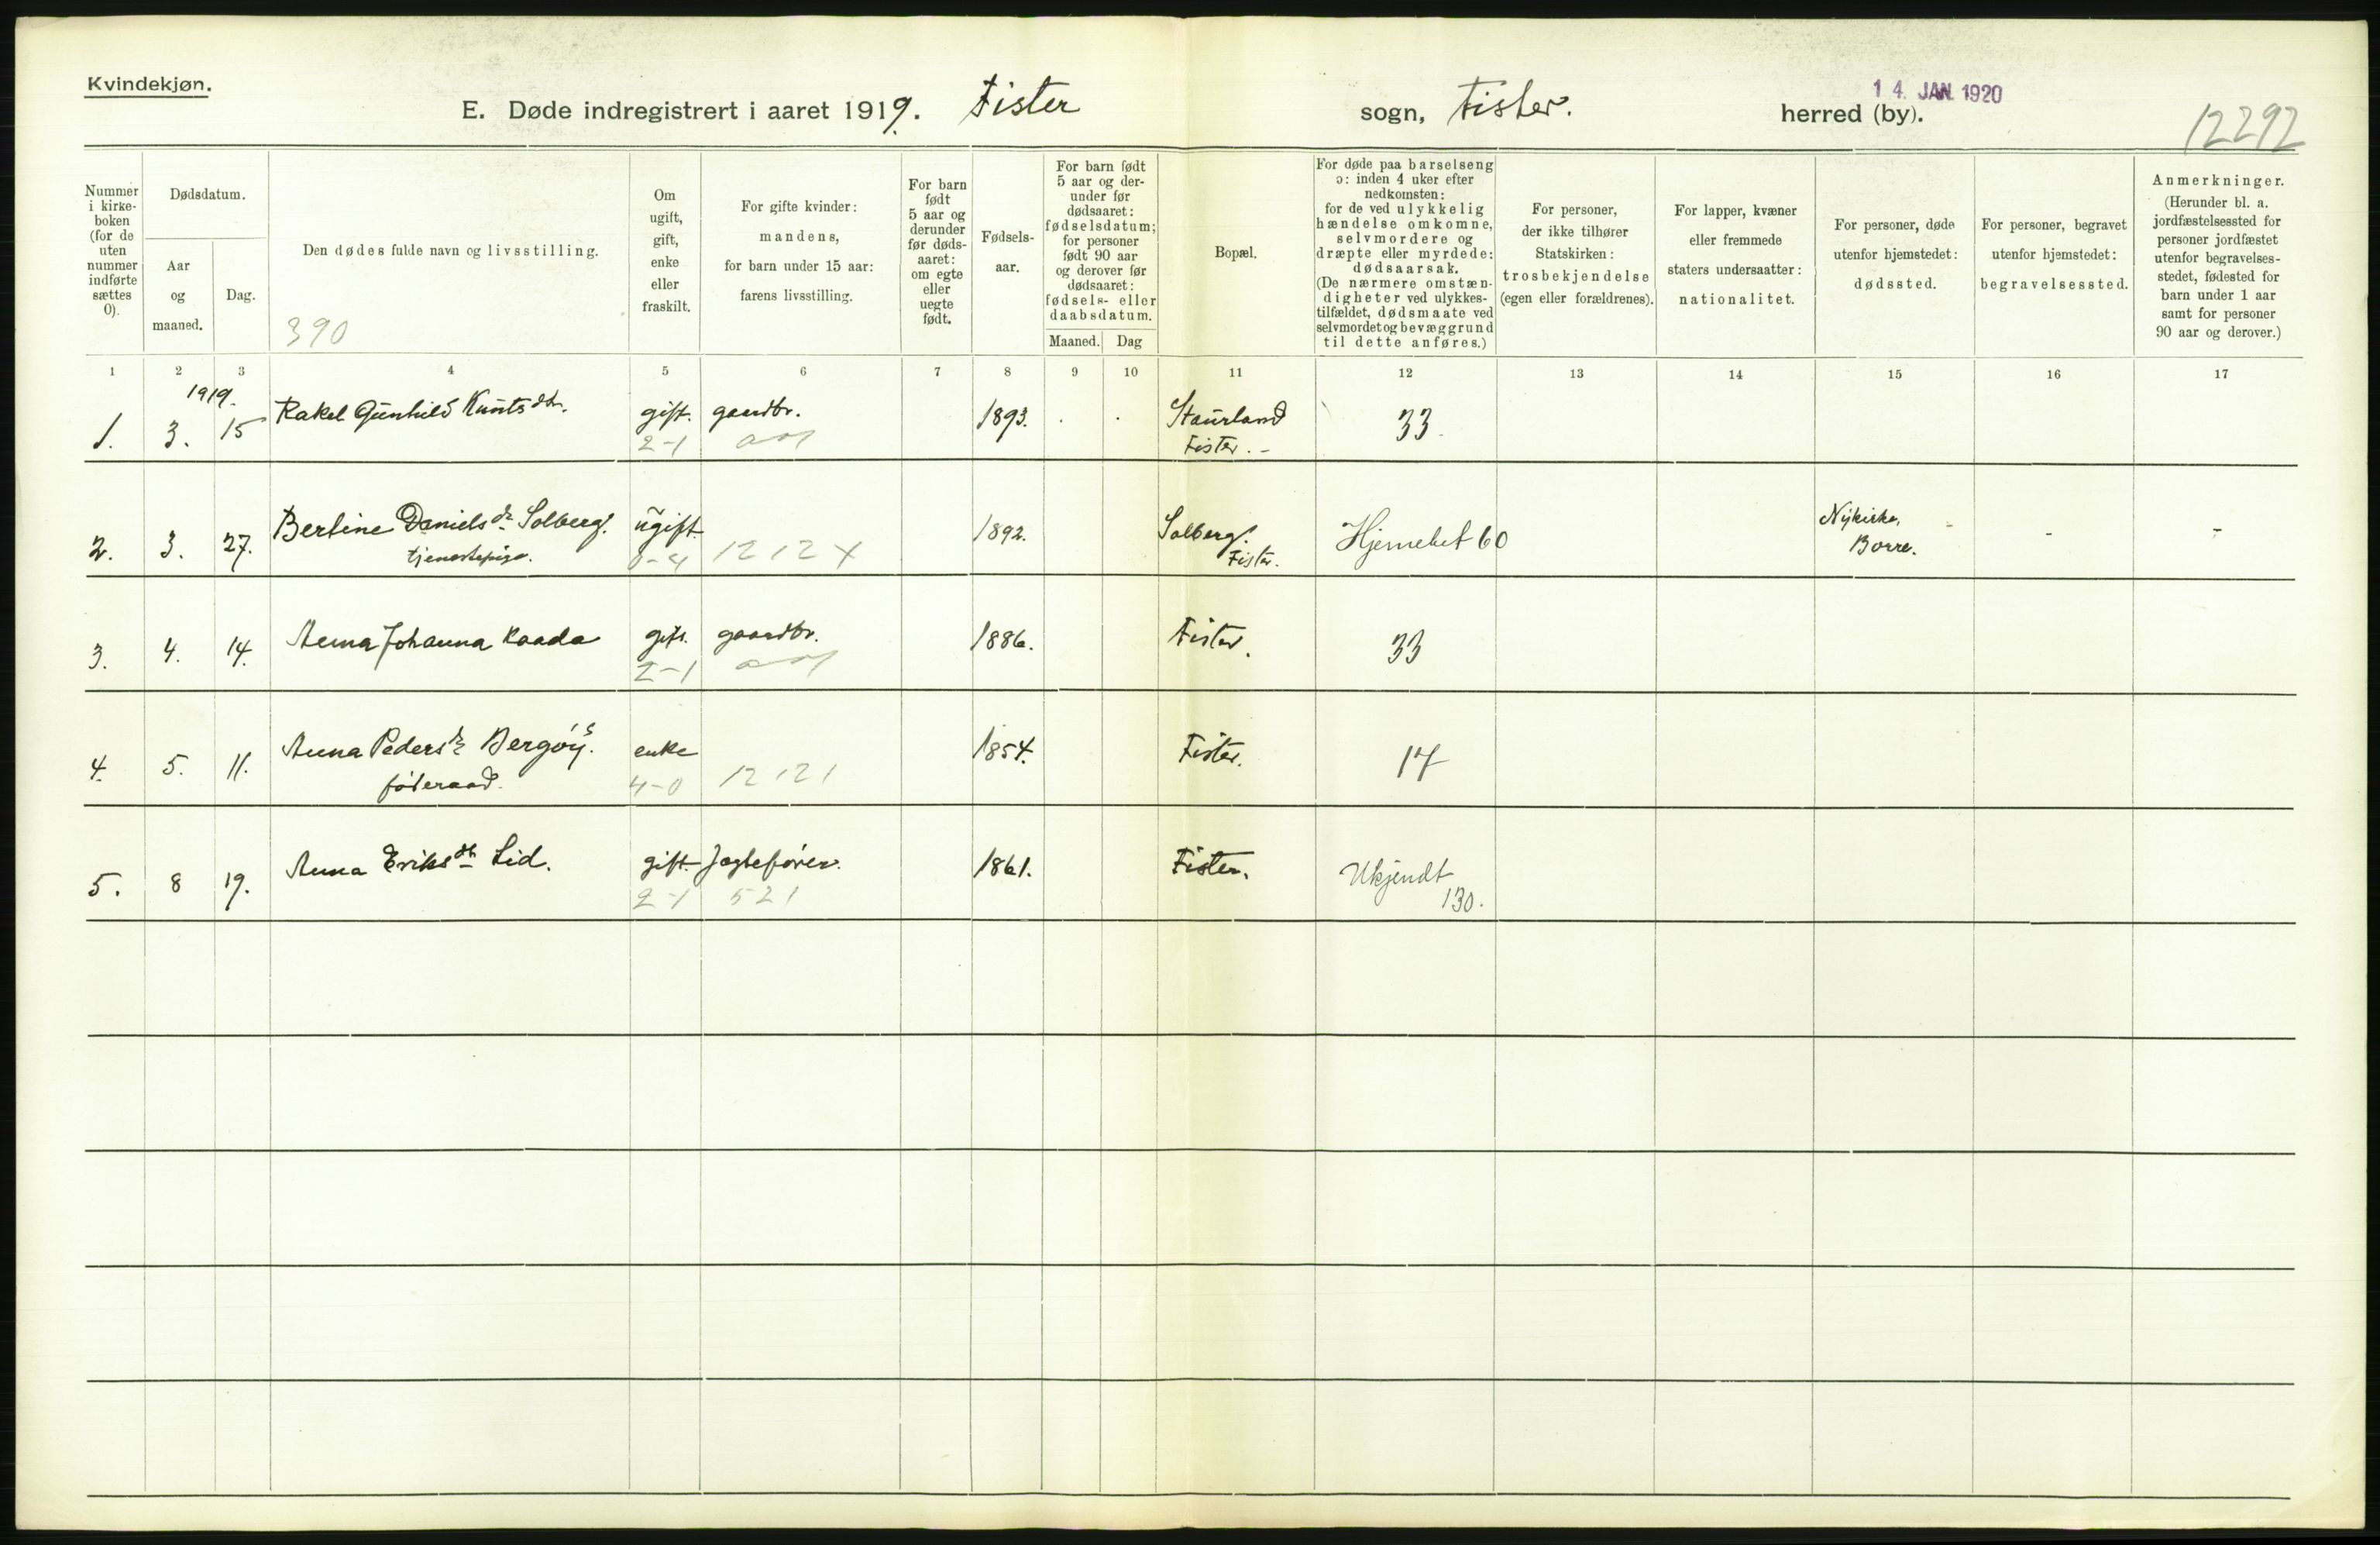 Kvindekjøn.
E. Døde indregistrert i aaret 1919. Fister sogn, Fister. herred (by).
14. JAN. 1920
12292
Nummer i kirke-boken (for de uten nummer indførte sættes 0).
Dødsdatum.
Aar og maaned.
Dag.
Den dødes fulde navn og livsstilling.
390
Om ugift, gift, enke eller fraskilt.
For gifte kvinder: mandens, for barn under 15 aar: farens livsstilling.
For barn født 5 aar og derunder før døds-aaret: om egte eller uegte født.
Fødsels-aar.
For barn født 5 aar og der-under før dødsaaret: fødselsdatum; for personer født 90 aar og derover før dødsaaret: fødsels- eller daabsdatum.
Maaned. Dag
Bopæl.
For døde paa barselseng ɔ: inden 4 uker efter nedkomsten: for de ved ulykkelig hændelse omkomne, selvmordere og dræpte eller myrdede: dødsaarsak. (De nærmere omstæn-digheter ved ulykkes-tilfældet, dødsmaate ved selvmordet og bevæggrund til dette anføres.)
For personer, der ikke tilhører Statskirken: trosbekjendelse (egen eller forældrenes).
For lapper, kvæner eller fremmede staters undersaatter: nationalitet.
For personer, døde utenfor hjemstedet: dødssted.
For personer, begravet utenfor hjemstedet: begravelsessted.
Anmerkninger. (Herunder bl. a. jordfæstelsessted for personer jordfæstet utenfor begravelses-stedet, fødested for barn under 1 aar samt for personer 90 aar og derover.)
1 2 3 4 5 6 7 8 9 10 11 12 13 14 15 16 17
1919.
1. 3. 15 Rakel Gunhild Knuts dtr. gift. gaardbr. 1893. Staurland 33.
2-1 Fister. -
2. 3. 27. Bertine Daniels dr Solberg. ugift 1892. Solberg. Hjernebet 60 Nykirke, - -
tjenestepige. 12 12 X Fister. Borre.
3. 4. 14. Anna Johanna Kaada gift. gaardbr. 1886. Fister. 33
2-1
4. 5. 11. Anna Peders dr Bergøy. enke 1854. Fister. 17
føderaad. 4-0 12 12 1
5. 8 19. Anna Eriks dtr Lid. gift. Jagtefører. 1861. Fister. Ukjendt
2-1 521 130.